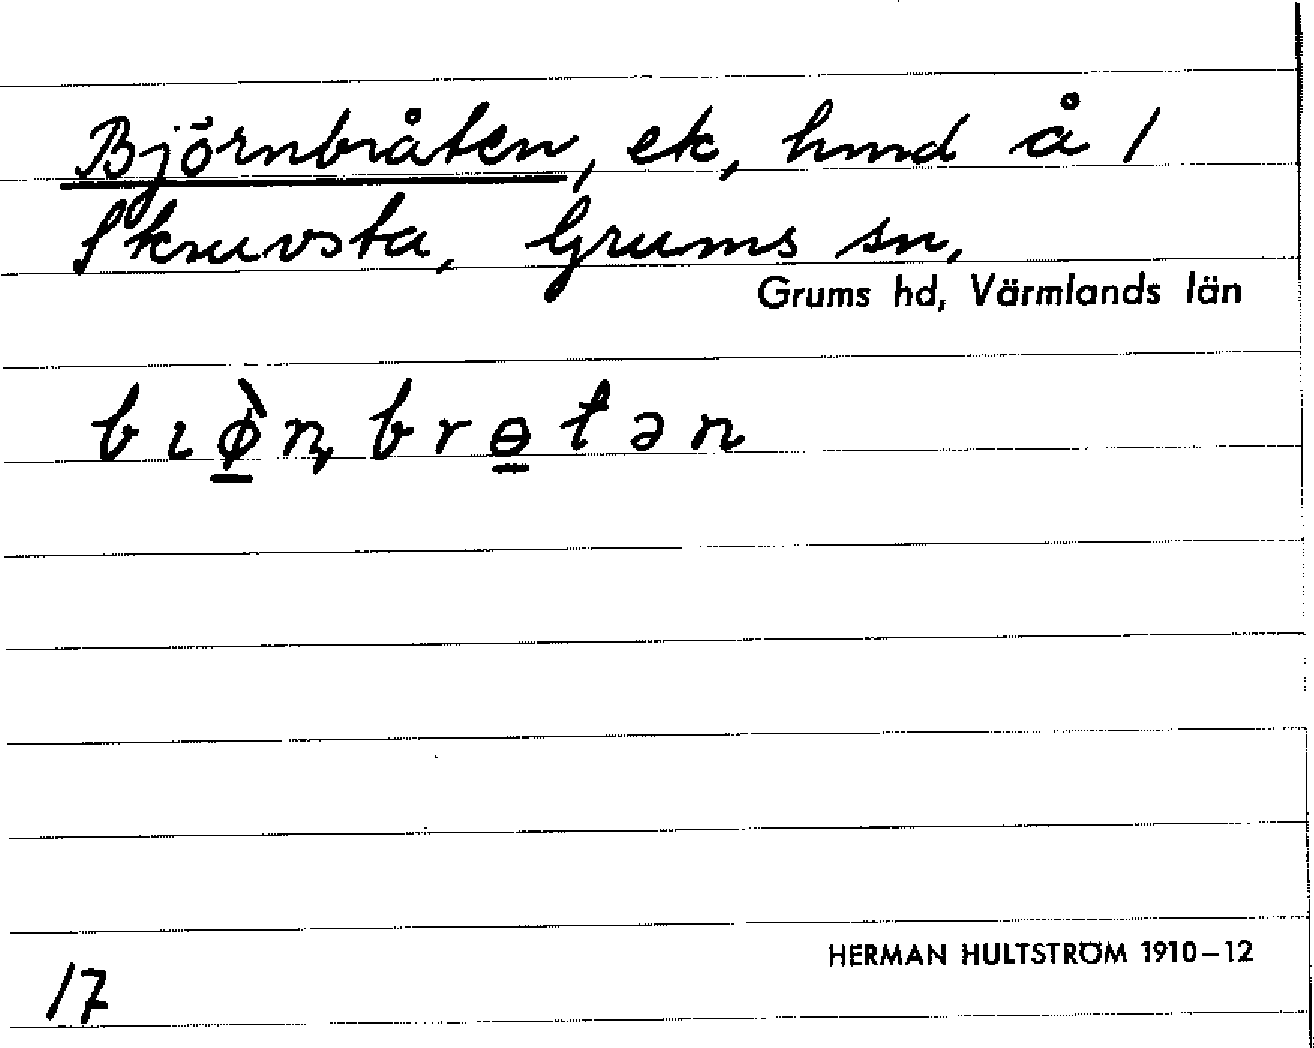 Björnbråten, ek, hmd å 1
Skruvsta, Grums sn,
Grums hd, Värmlands län
bɩø̠̀n̡brɵ̠tən
HERMAN HULTSTRÖM 1910–12
17